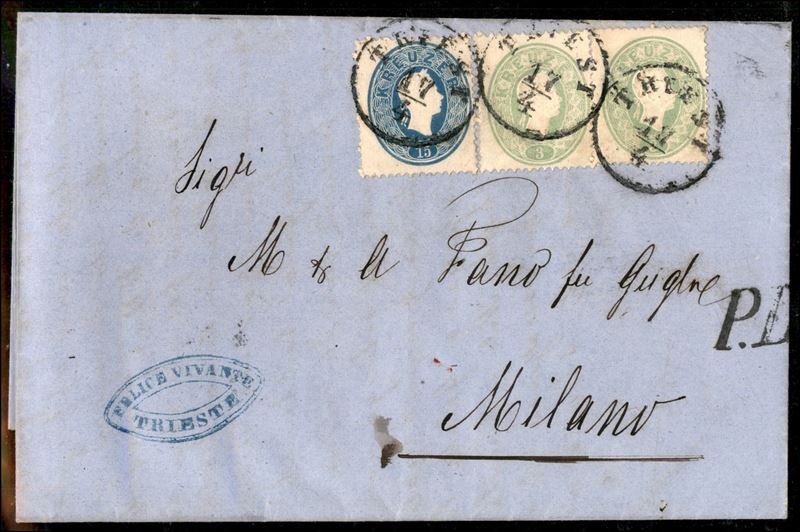 KREUZER
15
KREUZER
3
KREUZER
TRIEST
17/4
TRIEST
17/4
TRIEST
17/4
Sigri
M & A Fano fu Guglmo
P.D
Milano
FELICE VIVANTE
TRIESTE